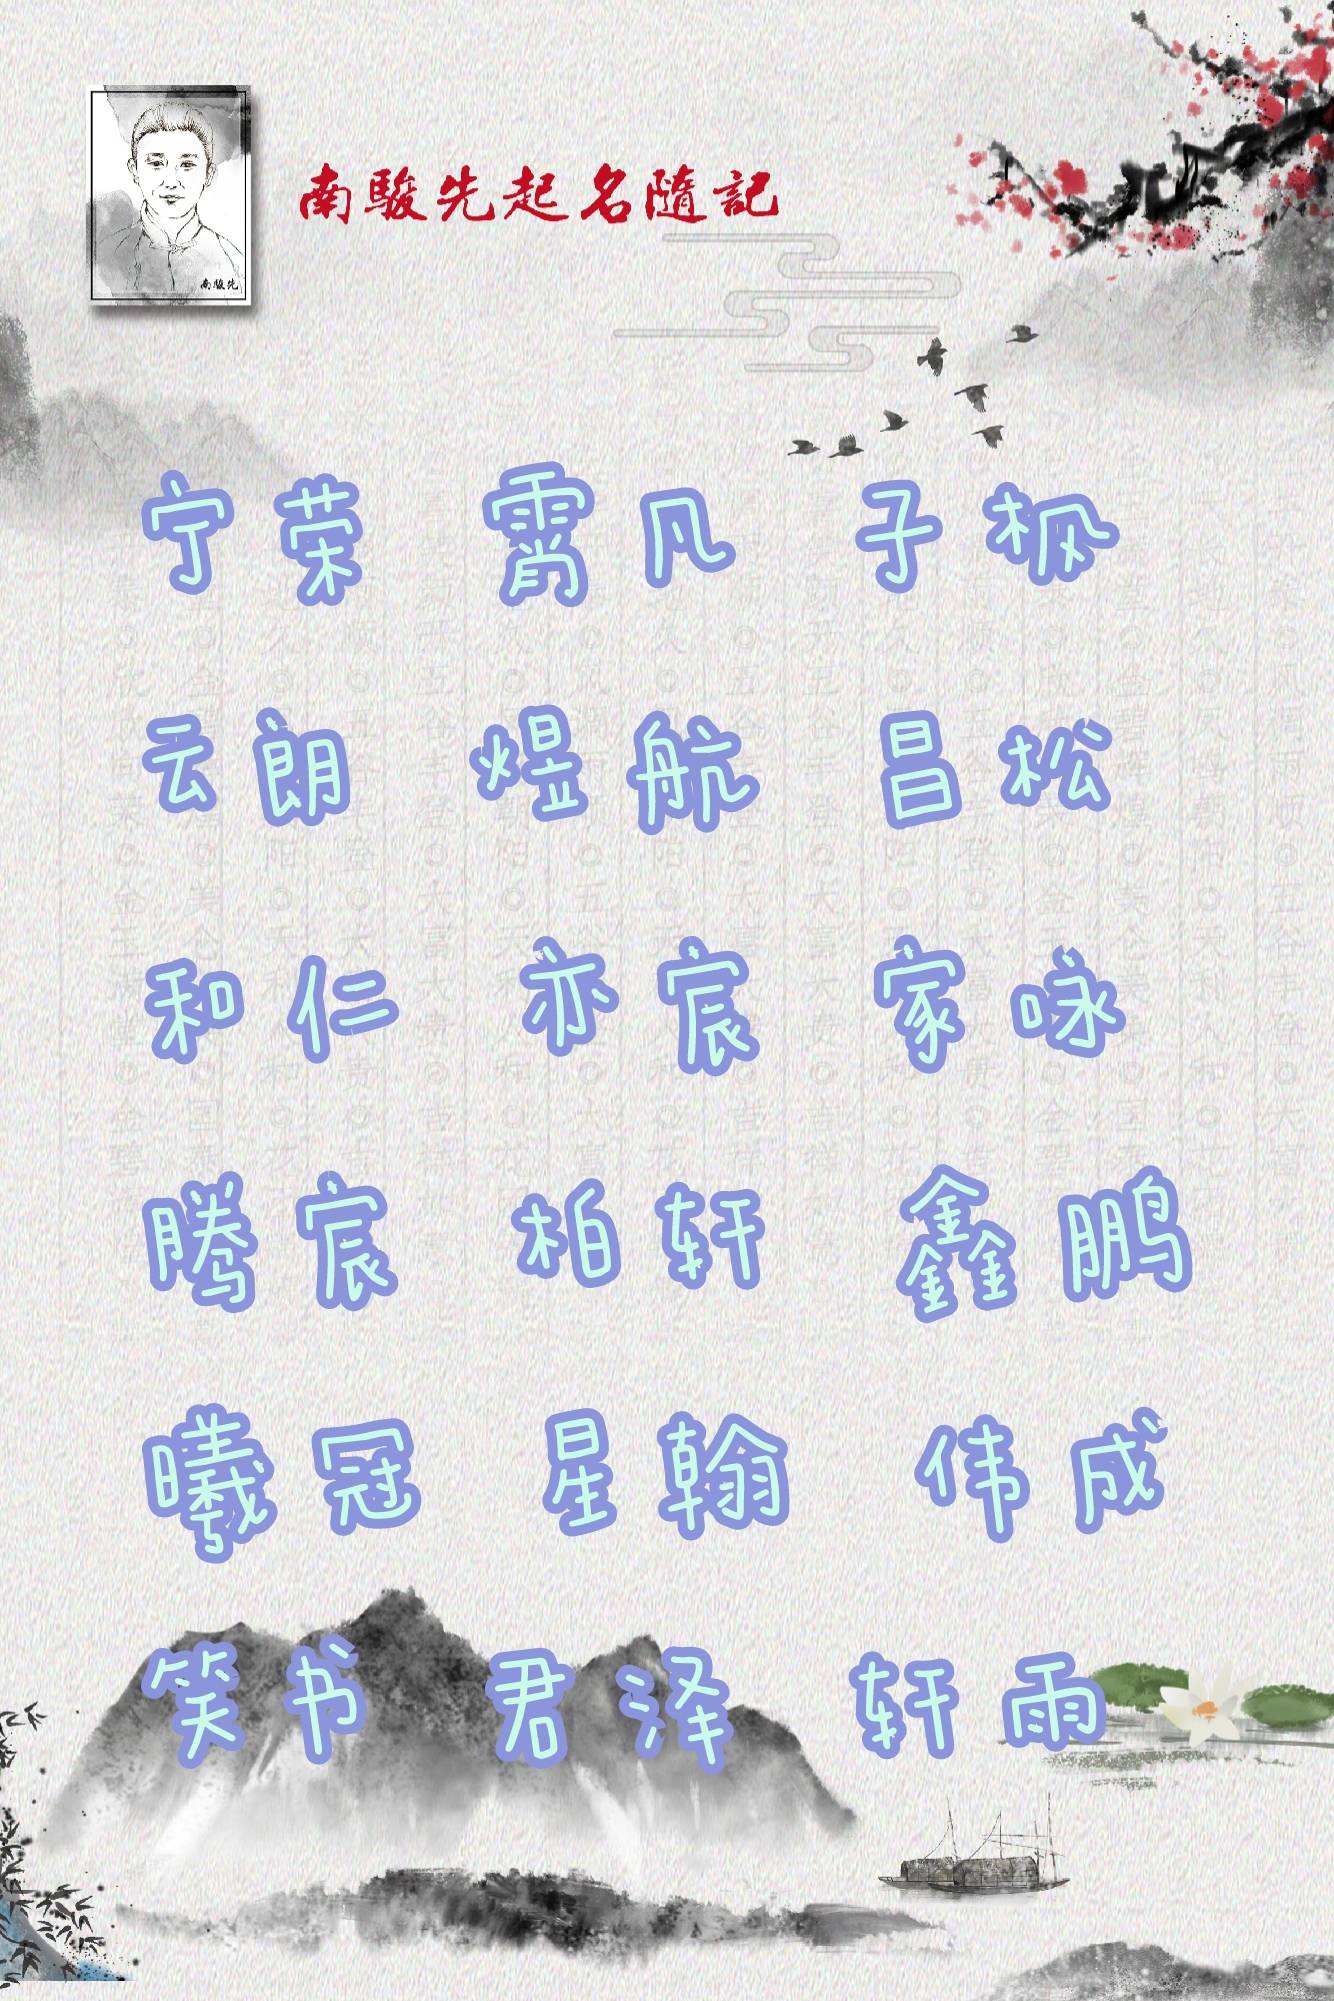 南駿先起名隨記
南駿先
宁荣 霄凡 子枫
云朗 煜航 昌松
和仁 亦宸 家咏
腾宸 柏轩 鑫鹏
曦冠 星翰 伟成
笑书 君泽 轩雨